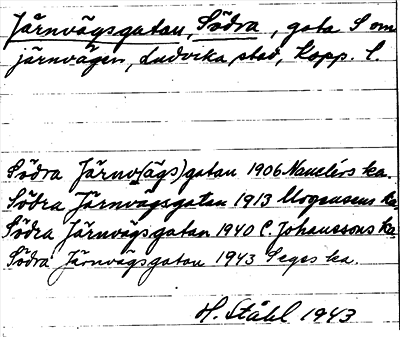 Järnvägsgatan, Södra, gata S om
järnvägen, Ludvika stad, Kopp. l.
Södra Järnv(ägs)gatan 1906 Nauclérs ka.
Södra Järnvägsgatan 1913 Mogensens ka
Södra Järnvägsgatan 1940 C. Johanssons ka
Södra Järnvägsgatan 1943 Seges ka.
H. Ståhl 1943